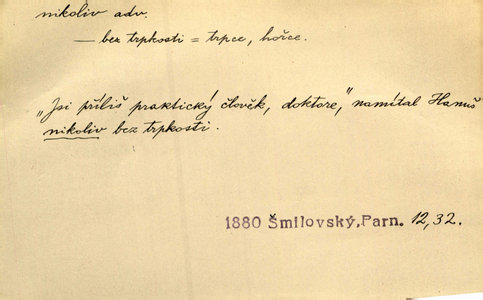 nikoliv adv.
— bez trpkosti = trpce, hořce.
„Jsi příliš praktický člověk, doktore,“ namítal Hanuš
nikoliv bez trpkosti.
1880 Šmilovský, Parn. 12, 32.